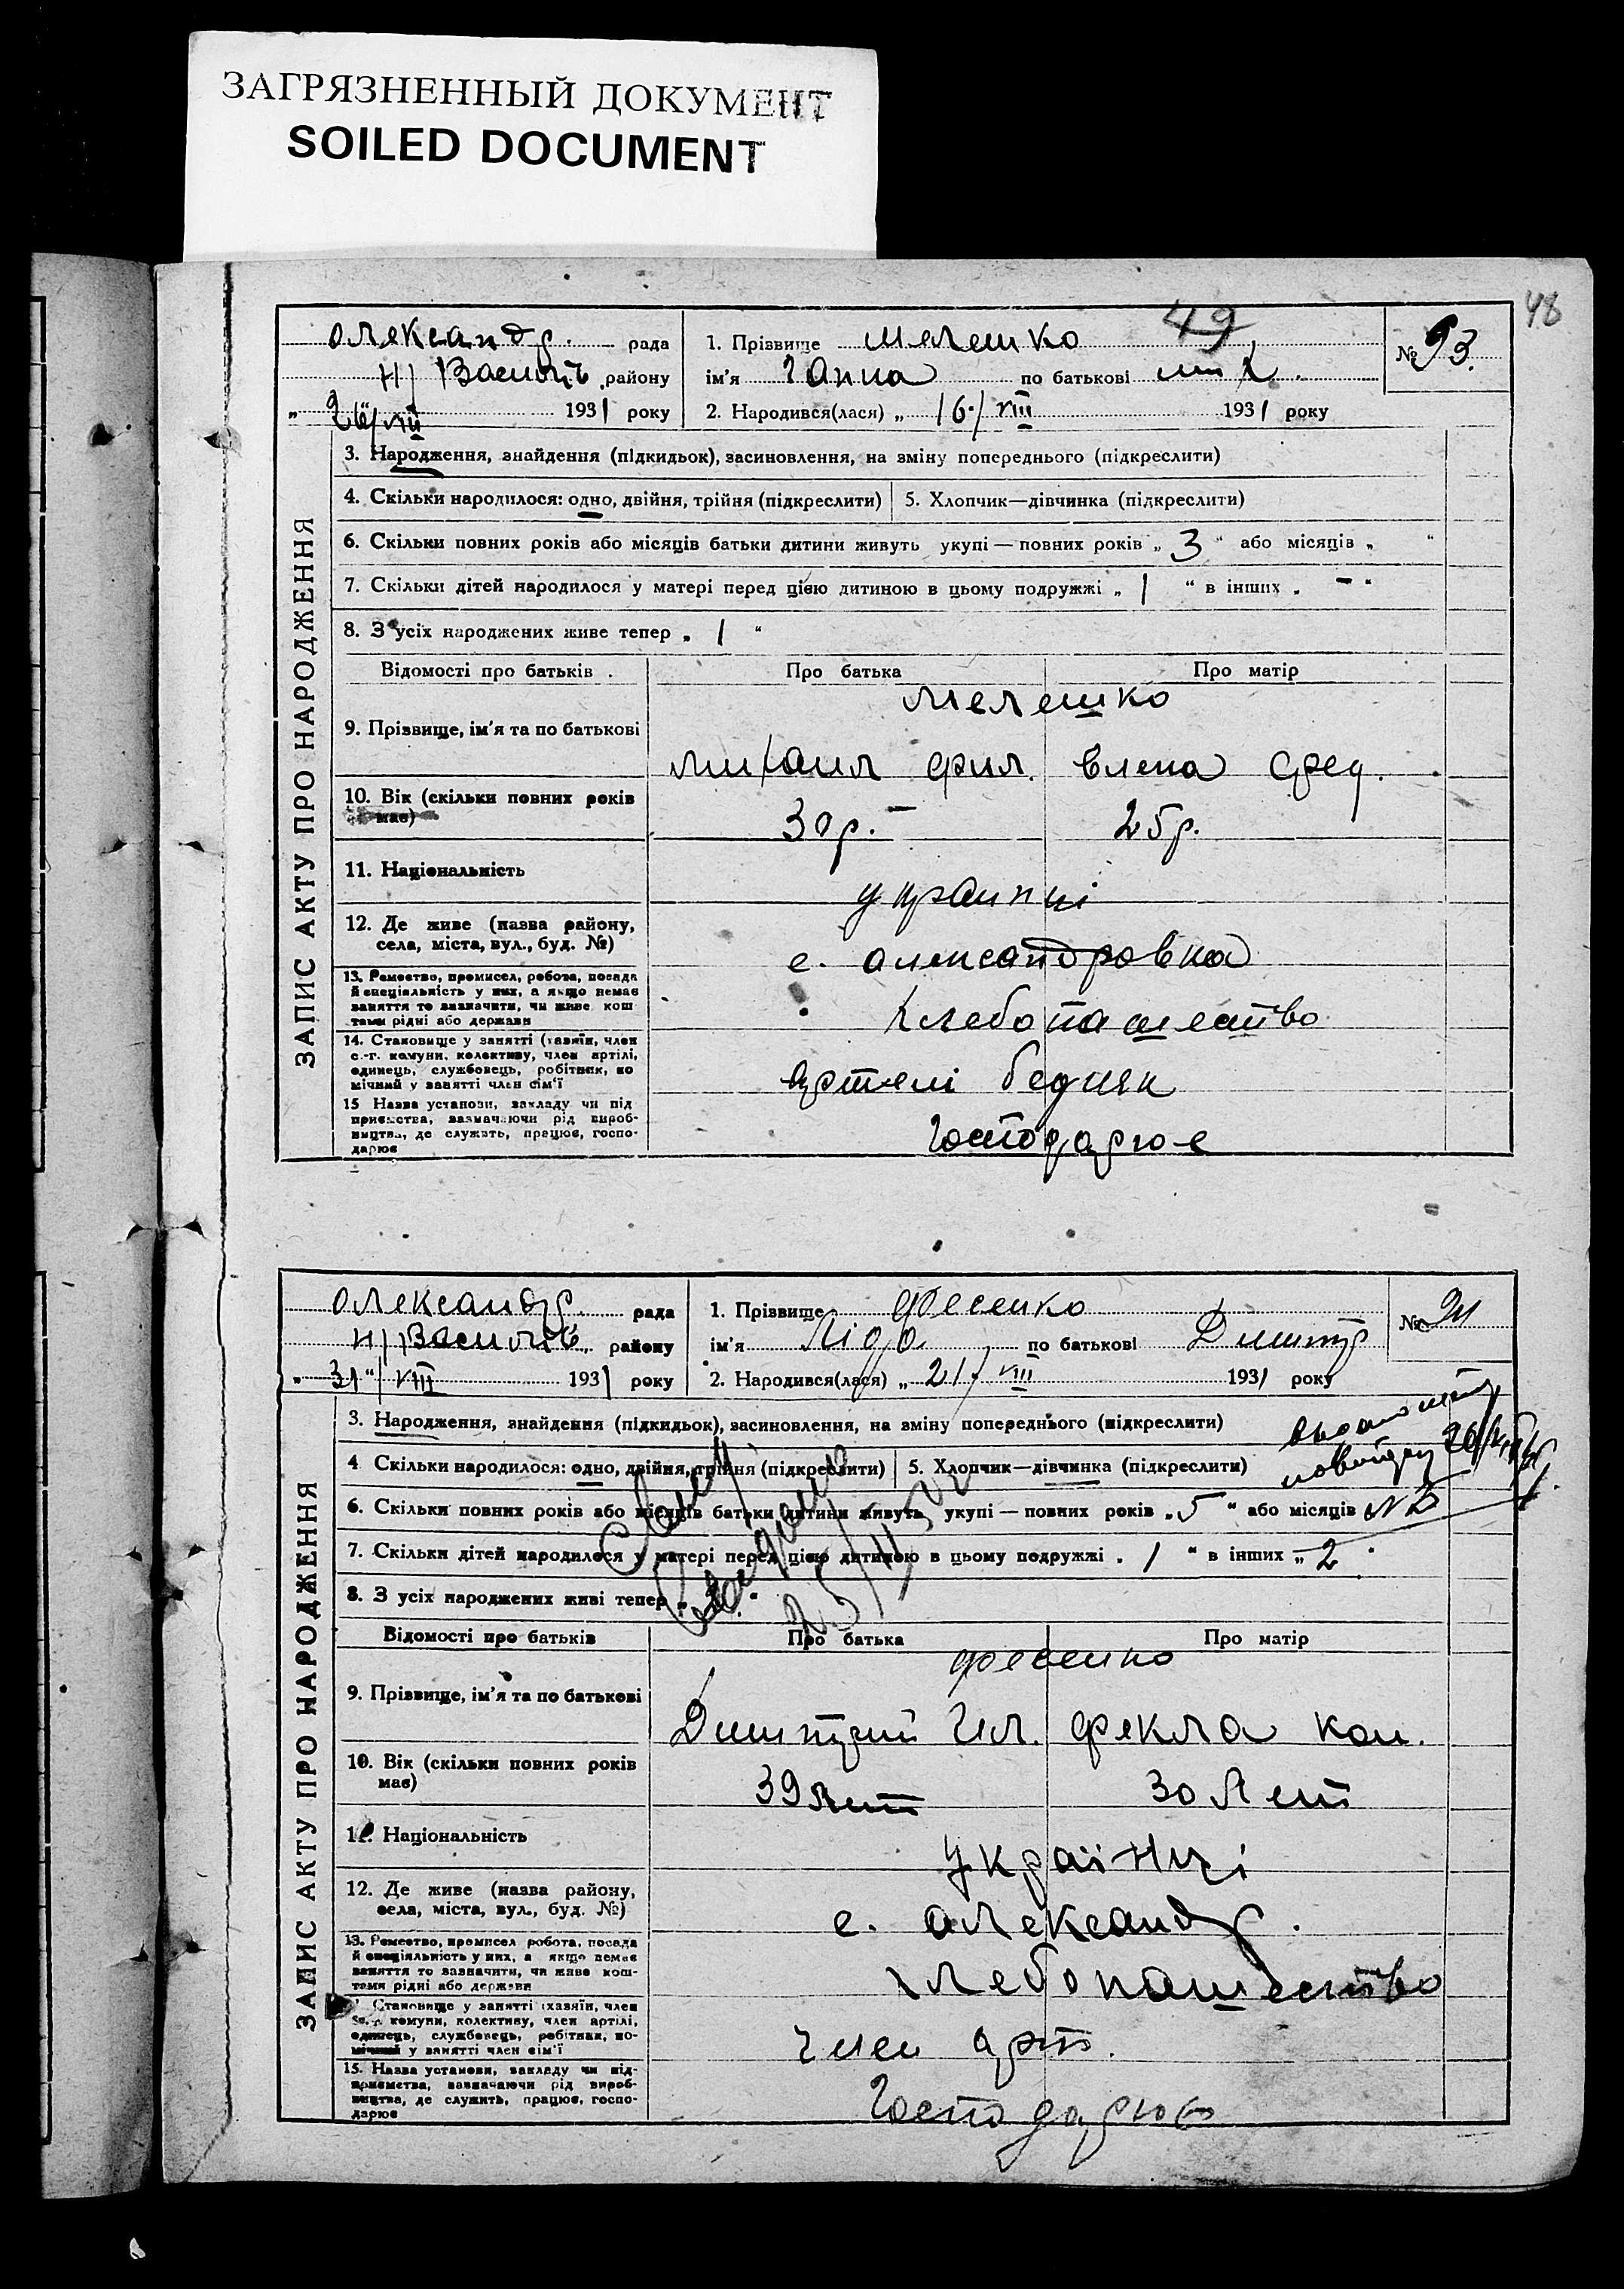 ЗАГРЯЗНЕННЫЙ ДОКУМЕНТ
SOILED DOCUMENT
48
49
Олександр. рада
Н/Василів. району
„26“/VIII 1931 року
1. Прізвище Мелешко
ім'я Ганна по батькові Мих.
2. Народився(лася) „16/VIII 1931 року
№ 93.
ЗАПИС АКТУ ПРО НАРОДЖЕННЯ
3. Народження, знайдення (підкидьок), засиновлення, на зміну попереднього (підкреслити)
4. Скільки народилося: одно, двійня, трійня (підкреслити) 5. Хлопчик—дівчинка (підкреслити)
6. Скільки повних років або місяців батьки дитини живуть укупі — повних років „3“ або місяців „ “
7. Скільки дітей народилося у матері перед цією дитиною в цьому подружжі „1“ в інших „–“
8. З усіх народжених живе тепер „1“
Відомості про батьків Про батька Про матір
Мелешко
9. Прізвище, ім'я та по батькові
Михаил Фил. Елена Фед.
10. Вік (скільки повних років має)
30 р. 25 р.
11. Національність
українці
12. Де живе (назва району,
села, міста, вул., буд. №)
с. Александровка
13. Ремество, промисел, робота, посада
й спеціальність у них, а якщо немає
заняття то зазначити, чи живе кош-
тами рідні або держави
хлебопашество
14. Становище у занятті (хазяїн, член
с.-г. комуни, колективу, член артілі,
одинець, службовець, робітник, по
мічний у занятті член сім'ї
артелі бедняк
15 Назва установи, закладу чи під
приємства, зазначаючи рід вироб-
ництва, де служить, працює, госпо-
дарює
господарює
Олександр. рада
Н/Василів. району
„31“/VIII 1931 року
1. Прізвище Фесенко
ім'я Ліда по батькові Димитр
2. Народився(лася) „21/VIII 1931 року
№
ЗАПИС АКТУ ПРО НАРОДЖЕННЯ
3. Народження, знайдення (підкидьок), засиновлення, на зміну попереднього (підкреслити)
4 Скільки народилося: одно, двійня, трійня (підкреслити) 5. Хлопчик—дівчинка (підкреслити)
6. Скільки повних років або місяців батьки дитини живуть укупі — повних років „5“ або місяців
7. Скільки дітей народилося у матері перед цією дитиною в цьому подружжі „1“ в інших „2“
8. З усіх народжених живі тепер
Відомості про батьків Про батька Про матір
Фесенко
9. Прізвище, ім'я та по батькові
Димитрий Ил. Фекла Кон.
10. Вік (скільки повних років
має)
39 лет 30 лет
11. Національність
українці
12. Де живе (назва району,
села, міста, вул., буд. №)
с. Александр.
13. Ремество, промисел робота, посада
й спеціяльність у них, а якщо немає
заняття то зазначити, чи живе кош-
тами рідні або держави
хлебопашество
Становище у занятті (хазяїн, член
комуни, колективу, член артілі,
одинець, службовець, робітник, по-
мічний у занятті член сім'ї
член арт.
15. Назва установи, закладу чи під-
приємства, зазначаючи рід вироб-
ництва, де служить, працює, госпо-
дарює
господарює